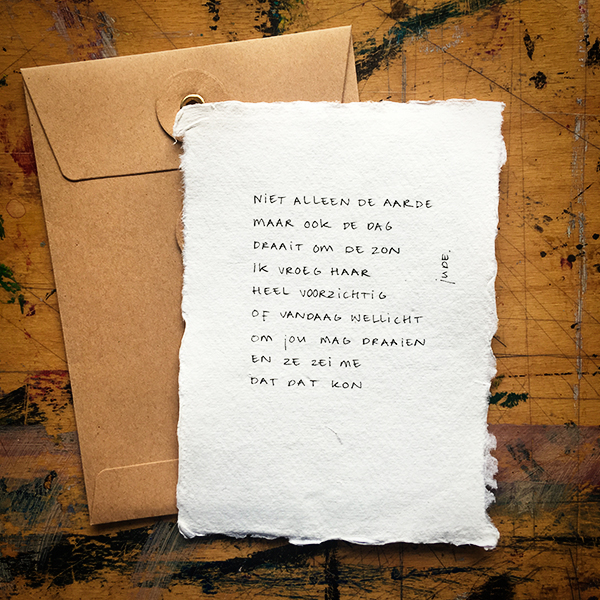 NIET ALLEEN DE AARDE
MAAR OOK DE DAG
DRAAIT OM DE ZON
IK VROEG HAAR
HEEL VOORZICHTIG
OF VANDAAG WELLICHT
OM JOU MAG DRAAIEN
EN ZE ZEI ME
DAT DAT KON
jUDE.